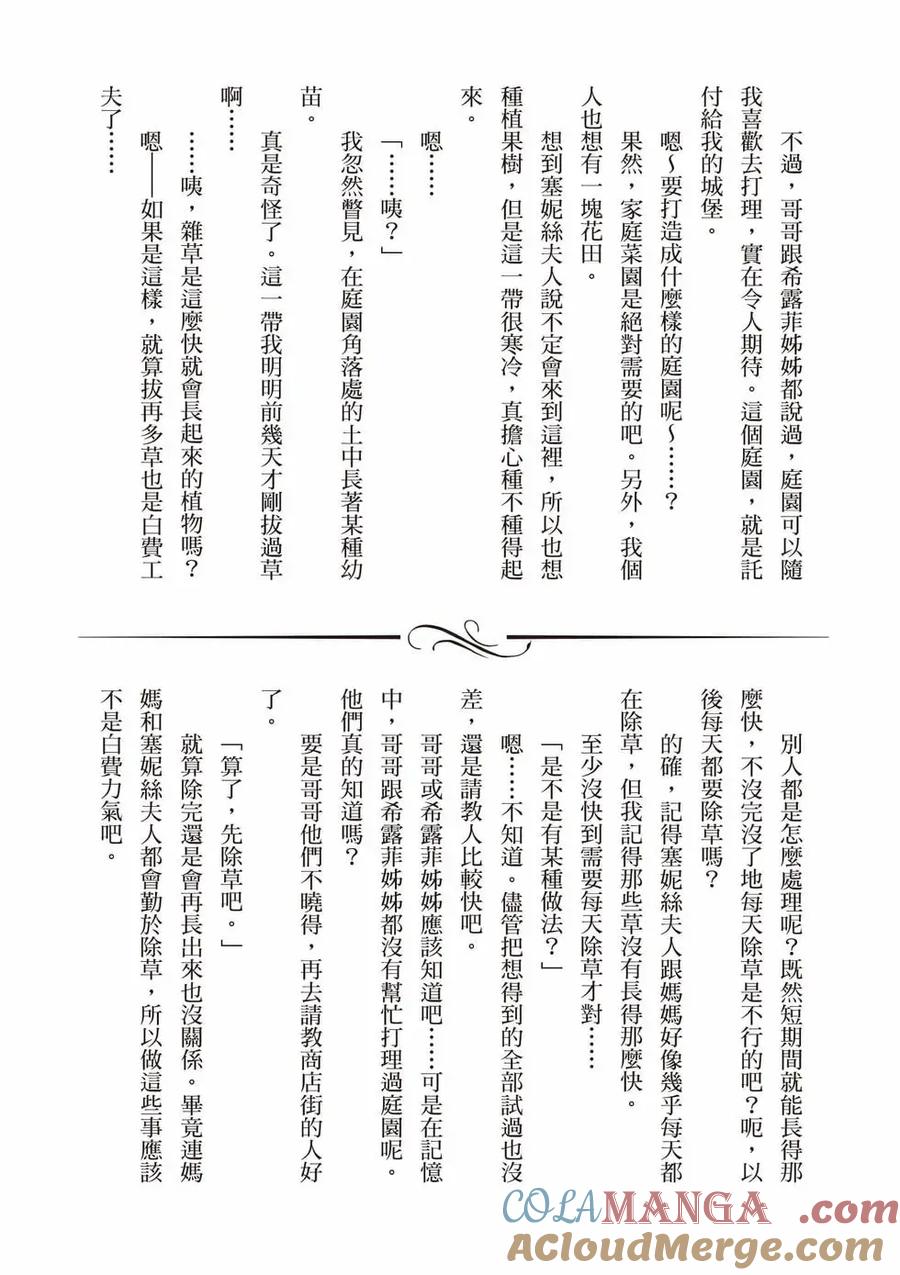 不過，哥哥跟希露菲姊姊都說過，庭園可以隨
我喜歡去打理，實在令人期待。這個庭園，就是託
付給我的城堡。
嗯～要打造成什麼樣的庭園呢～……？
果然，家庭菜園是絕對需要的吧。另外，我個
人也想有一塊花田。
想到塞妮絲夫人說不定會來到這裡，所以也想
種植果樹，但是這一帶很寒冷，真擔心種不種得起
來。
嗯……
「……咦？」
我忽然瞥見，在庭園角落處的土中長著某種幼
苗。
真是奇怪了。這一帶我明明前幾天才剛拔過草
啊……
……咦，雜草是這麼快就會長起來的植物嗎？
嗯——如果是這樣，就算拔再多草也是白費工
夫了……
別人都是怎麼處理呢？既然短期間就能長得那
麼快，不沒完沒了地每天除草是不行的吧？呃，以
後每天都要除草嗎？
的確，記得塞妮絲夫人跟媽媽好像幾乎每天都
在除草，但我記得那些草沒有長得那麼快。
至少沒快到需要每天除草才對……
「是不是有某種做法？」
嗯……不知道。儘管把想得到的全部試過也沒
差，還是請教人比較快吧。
哥哥或希露菲姊姊應該知道吧……可是在記憶
中，哥哥跟希露菲姊姊都沒有幫忙打理過庭園呢。
他們真的知道嗎？
要是哥哥他們不曉得，再去請教商店街的人好
了。
「算了，先除草吧。」
就算除完還是會再長出來也沒關係。畢竟連媽
媽和塞妮絲夫人都會勤於除草，所以做這些事應該
不是白費力氣吧。
COLAMANGA.com
ACloudMerge.com